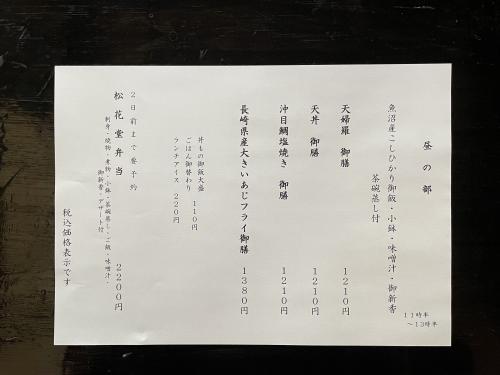 昼の部
１１時半
～１３時半
魚沼産こしひかり御飯・小鉢・味噌汁・御新香
茶碗蒸し付
天婦羅 御膳 １２１０円
天丼 御膳 １２１０円
沖目鯛塩焼き 御膳 １２１０円
長崎県産大きいあじフライ御膳 １３８０円
丼もの御飯大盛 １１０円
ごはん御替わり
ランチアイス ２２０円
２日前まで要予約
松花堂弁当 ２２００円
刺身・焼物・煮物・小鉢・茶碗蒸し・ご飯・味噌汁・
御新香・デザート付
税込価格表示です